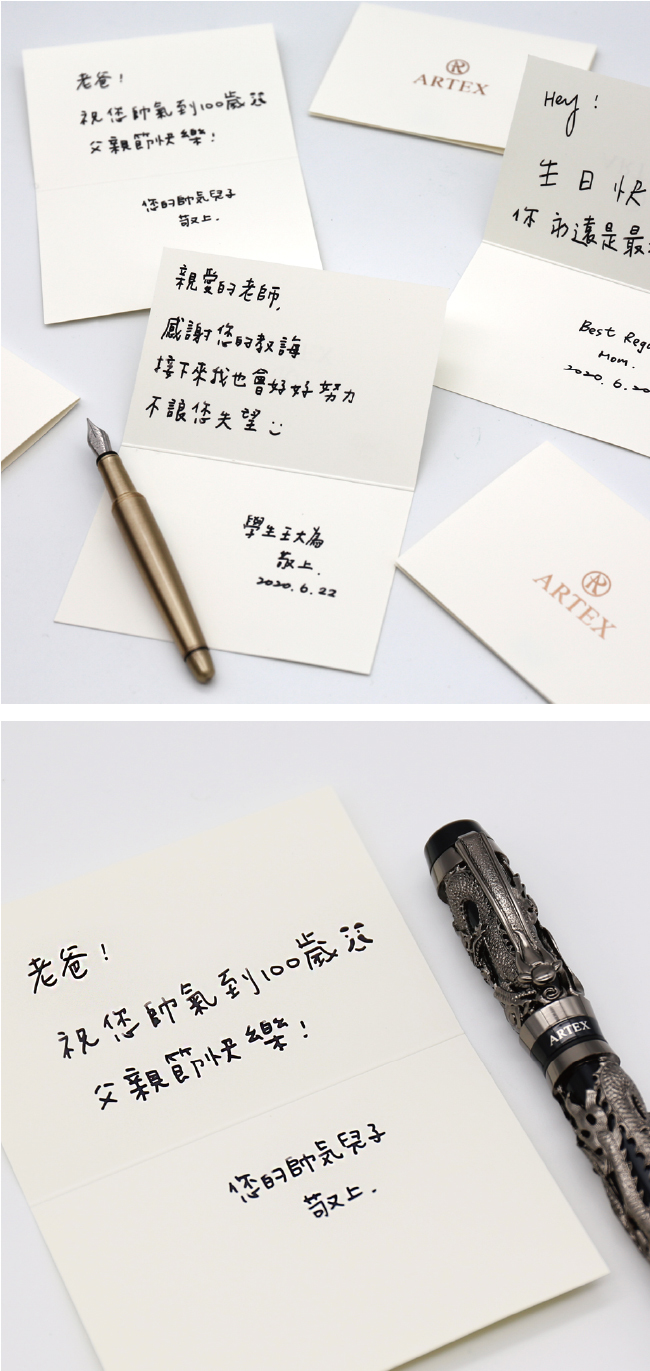 老爸!
祝您帥氣到100歲
父親節快樂!
您的帥気兒子
敬上.
ARTEX
Hey!
生日快
你永遠是最
Best Rega
Mom.
2020.6.20
親愛的老師,
感謝您的教誨
接下來我也會好好努力
不讓您失望
學生王大為
敬上.
2020.6.22
ARTEX
老爸!
祝您帥氣到100歲
父親節快樂!
您的帥気兒子
敬上.
ARTEX